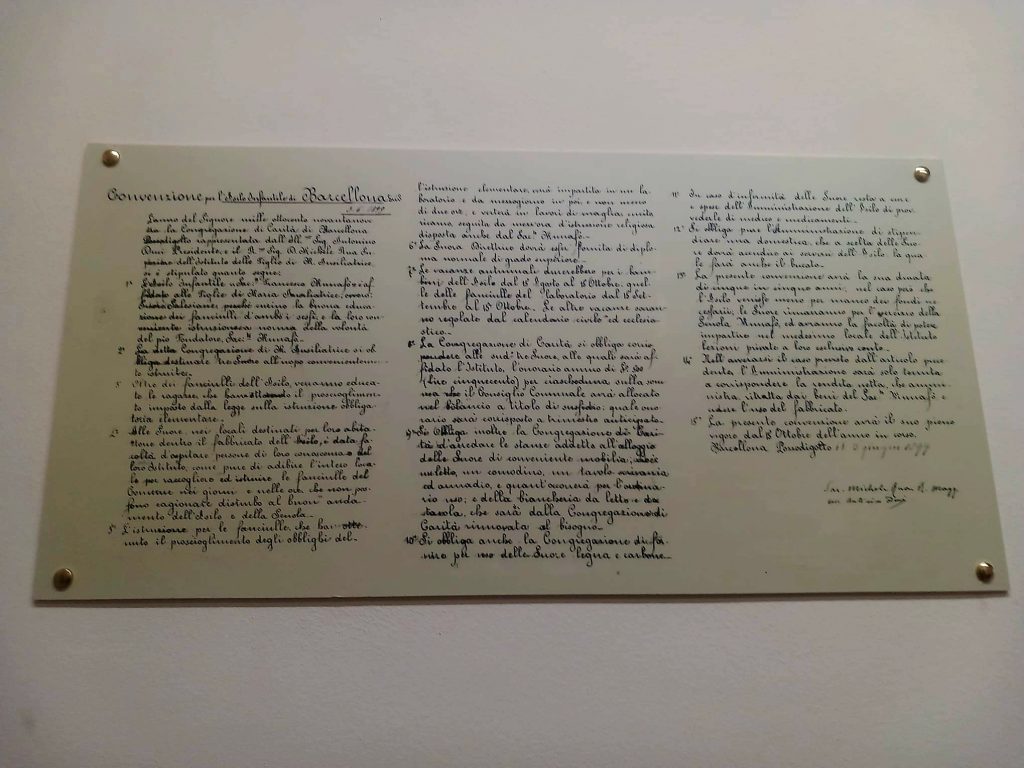 Convenzione per l'Asilo Infantile di Barcellona
3-6-1899
L'anno del Signore mille ottocento novantanove
tra la Congregazione di Carità di Barcellona
Pozzodigotto rappresentata dall'Ill. Sig. Antonino
Presidente e il R. Sig. D. Michele Rua Su-
periore dell'Istituto delle Figlie di M. Ausiliatrice,
si è stipulato quanto segue:
1° L'Asilo Infantile Francesco Munafò è af-
fidato alle Figlie di Maria Ausiliatrice, ovvero
Suore Salesiane perchè curino la buona educa-
zione dei fanciulli d'ambo i sessi, e la loro con-
veniente istruzione a norma della volontà
del pio Fondatore, Sac. Munafò.
2° La detta Congregazione di M. Ausiliatrice si ob-
bliga destinate tre Suore all'uopo convenientemen-
te istruite.
3° Oltre dei fanciulli dell'Asilo, verranno educa-
te le ragazze che han ottenuto il proscioglimen-
to imposto dalla legge sulla istruzione obbliga-
toria elementare.
4° Alle Suore nei locali destinati per loro abita-
zione dentro il fabbricato dell'Asilo, è data fa-
coltà d'ospitare persone di loro conoscenza e del
loro Istituto, come pure di adibire l'intero loca-
le per raccogliere ed istruire le fanciulle del
Comune nei giorni e nelle ore, che non pos-
sono cagionare disturbo al buon anda-
mento dell'Asilo e della Scuola.
5° L'istruzione per le fanciulle, che han otte-
nuto il proscioglimento degli obblighi del-
l'istruzione elementare, sarà impartita in un la-
boratorio e da mezzogiorno in poi e non meno
di due ore, e verterà in lavori di maglia, cucito
seguita da mezz'ora d'istruzione religiosa
disposta anche dal Sac. Munafò.
6° La Suora Direttrice dovrà esser fornita di diplo-
ma normale di grado superiore.
7° Le vacanze autunnali dureranno per i bam-
bini dell'Asilo dal 15 Agosto al 15 Ottobre, quel-
le delle fanciulle del laboratorio dal 15 Set-
tembre al 15 Ottobre. Le altre vacanze saran-
no regolate dal calendario civile ed ecclesia-
stico.
8° La Congregazione di Carità si obbliga corris-
pondere alle sud. tre Suore, alle quali sarà af-
fidato l'Istituto, l'onorario annuo di £. 500
(lire cinquecento) per ciascheduna, sulla som-
ma che il Consiglio Comunale avrà allocato
nel bilancio a titolo di sussidio; quale ono-
rario sarà corrisposto a trimestre anticipato.
9° Si obbliga inoltre la Congregazione di Cari-
tà d'arredare le stanze addette all'alloggio
delle Suore di conveniente mobilia, cioè
un letto, un comodino, un tavolo
ed armadio, e quant'occorrerà per l'ordina-
rio uso; e della biancheria da letto e da
tavola, che sarà dalla Congregazione di
Carità rinnovata al bisogno.
10° Si obbliga anche la Congregazione di for-
nire per uso delle Suore legna e carbone.
11° In caso d'infermità delle Suore resta a cura
e spese dell'Amministrazione dell'Asilo di prov-
vederle di medico e medicamenti.
12° Si obbliga pure l'Amministrazione di stipen-
diare una domestica, che a scelta delle Suo-
re dovrà accudire ai servizi dell'Asilo, la qua-
le farà anche il bucato.
13° La presente convenzione avrà la sua durata
di cinque in cinque anni; nel caso però che
l'Asilo venisse meno per manco dei fondi ne-
cessarii, le Suore rimarranno per l'esercizio della
Scuola Munafò, ed avranno la facoltà di potere
impartire nel medesimo locale dell'Istituto
lezioni private a loro esclusivo conto.
14° Nell'avverarsi il caso previsto dall'articolo prece-
dente, l'Amministrazione sarà solo tenuta
a corrispondere la rendita netta, che ammi-
nistra, ritratta dai beni del Sac. Munafò e
l'uso del fabbricato.
15° La presente convenzione avrà il suo pieno
vigore dal 15 Ottobre dell'anno in corso.
Barcellona Pozzodigotto li 3 giugno 1899
Sac. Michele Rua